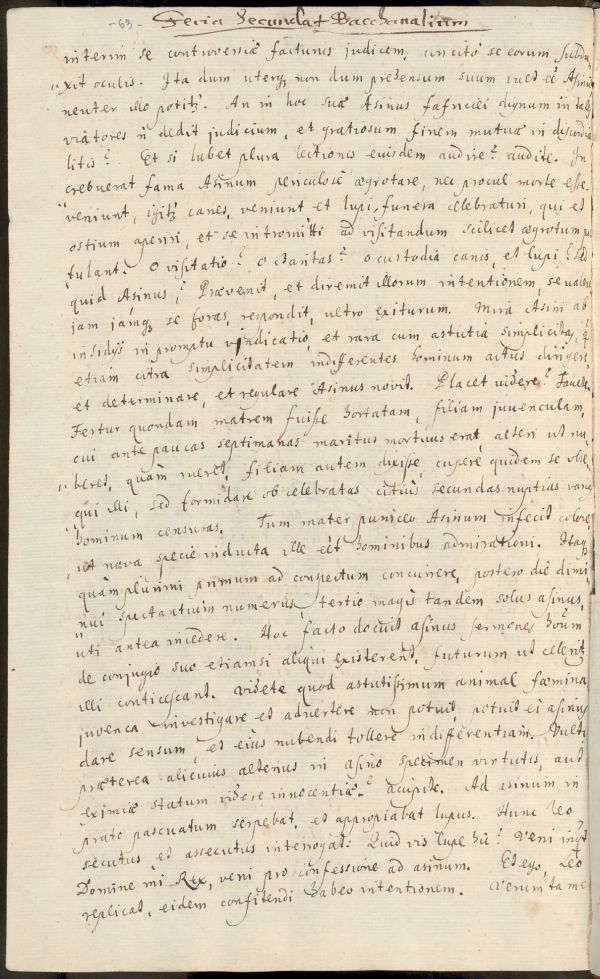 -63- Feria Secunda Bacchanalium
interim se controversiæ facturus judicem, concito se eorum subdu
xit oculis. Ita dum uterq non dum prehensum suum vult eē Asinū
neuter illo potitr. An in hoc suæ Asinus dignum in tales
viatores ñ dedit judicium, et gratiosum finem mutuæ in discordia
litis? Et si lubet plura lectionis eiusdem audire? audite. In
crebuerat fama Asinum periculosè ægrotare, nec procul morte esse.
veniunt, igitr canes, veniunt et lupi, funera celebraturi, qui et
ostium aperiri, et se intromitti ad visitandum scilicet ægrotum pos
tulant. O visitatio? O charitas? o custodia canis, et lupi? Sed
quid Asinus? Prævenit, et diremit illorum intentionem, se valere
jam jamq se foras, respondit, ultro exiturum. Mira Asini ab
insidijs in promptu vindicatio et rara cum astutia simplicitas, q
etiam citra simplicitatem indifferentes hominum actus dirigere
et determinare, et regulare Asinus novit. Placet videre? Favete.
Fertur quondam matrem fuisse hortatam, filiam juvenculam,
cui ante paucas septimanas maritus mortuus erat, alteri ut nu
beret, quàm fileret, filiam autem dixisse, cupere quidem se obse
qui illi, sed formidare ob celebratas citius secundas nuptias vanas
hominum censuras. Tum mater puniceo Asinum infecit colore
ut nova specie inducta ille eēt hominibus admirationi. Itaq
quamplurimi primum ad conspectum concurrere, postero die dimi
nui spectantium numerus, tertio magis tandem solus asinus,
uti antea incedere. Hoc facto docuit asinus sermones hoūm
de conjugio suo etiamsi aliqui existerent, futurum ut celeritr
illi conticescant. Videte quod astutissimum animal fæmina
juvenca investigare et advertere non potuit, potuit ei asinus
dare sensum, et eius nubendi tollere indifferentiam. Vultis
præterea alicuius alterius in asino specimen virtutis, aut
eximiæ statum videre innocentiæ? accipite. Ad asinum in
prato pascuatum serpebat, et appropiabat lupus. Hunc leo
secutus et assecutus interrogat: Quid vis lupe hic? Veni inquit
Domine mi Rex, veni pro confessione ad asinum. Et ego, Leo
replicat, eidem confitendi habeo intentionem. Verum tame